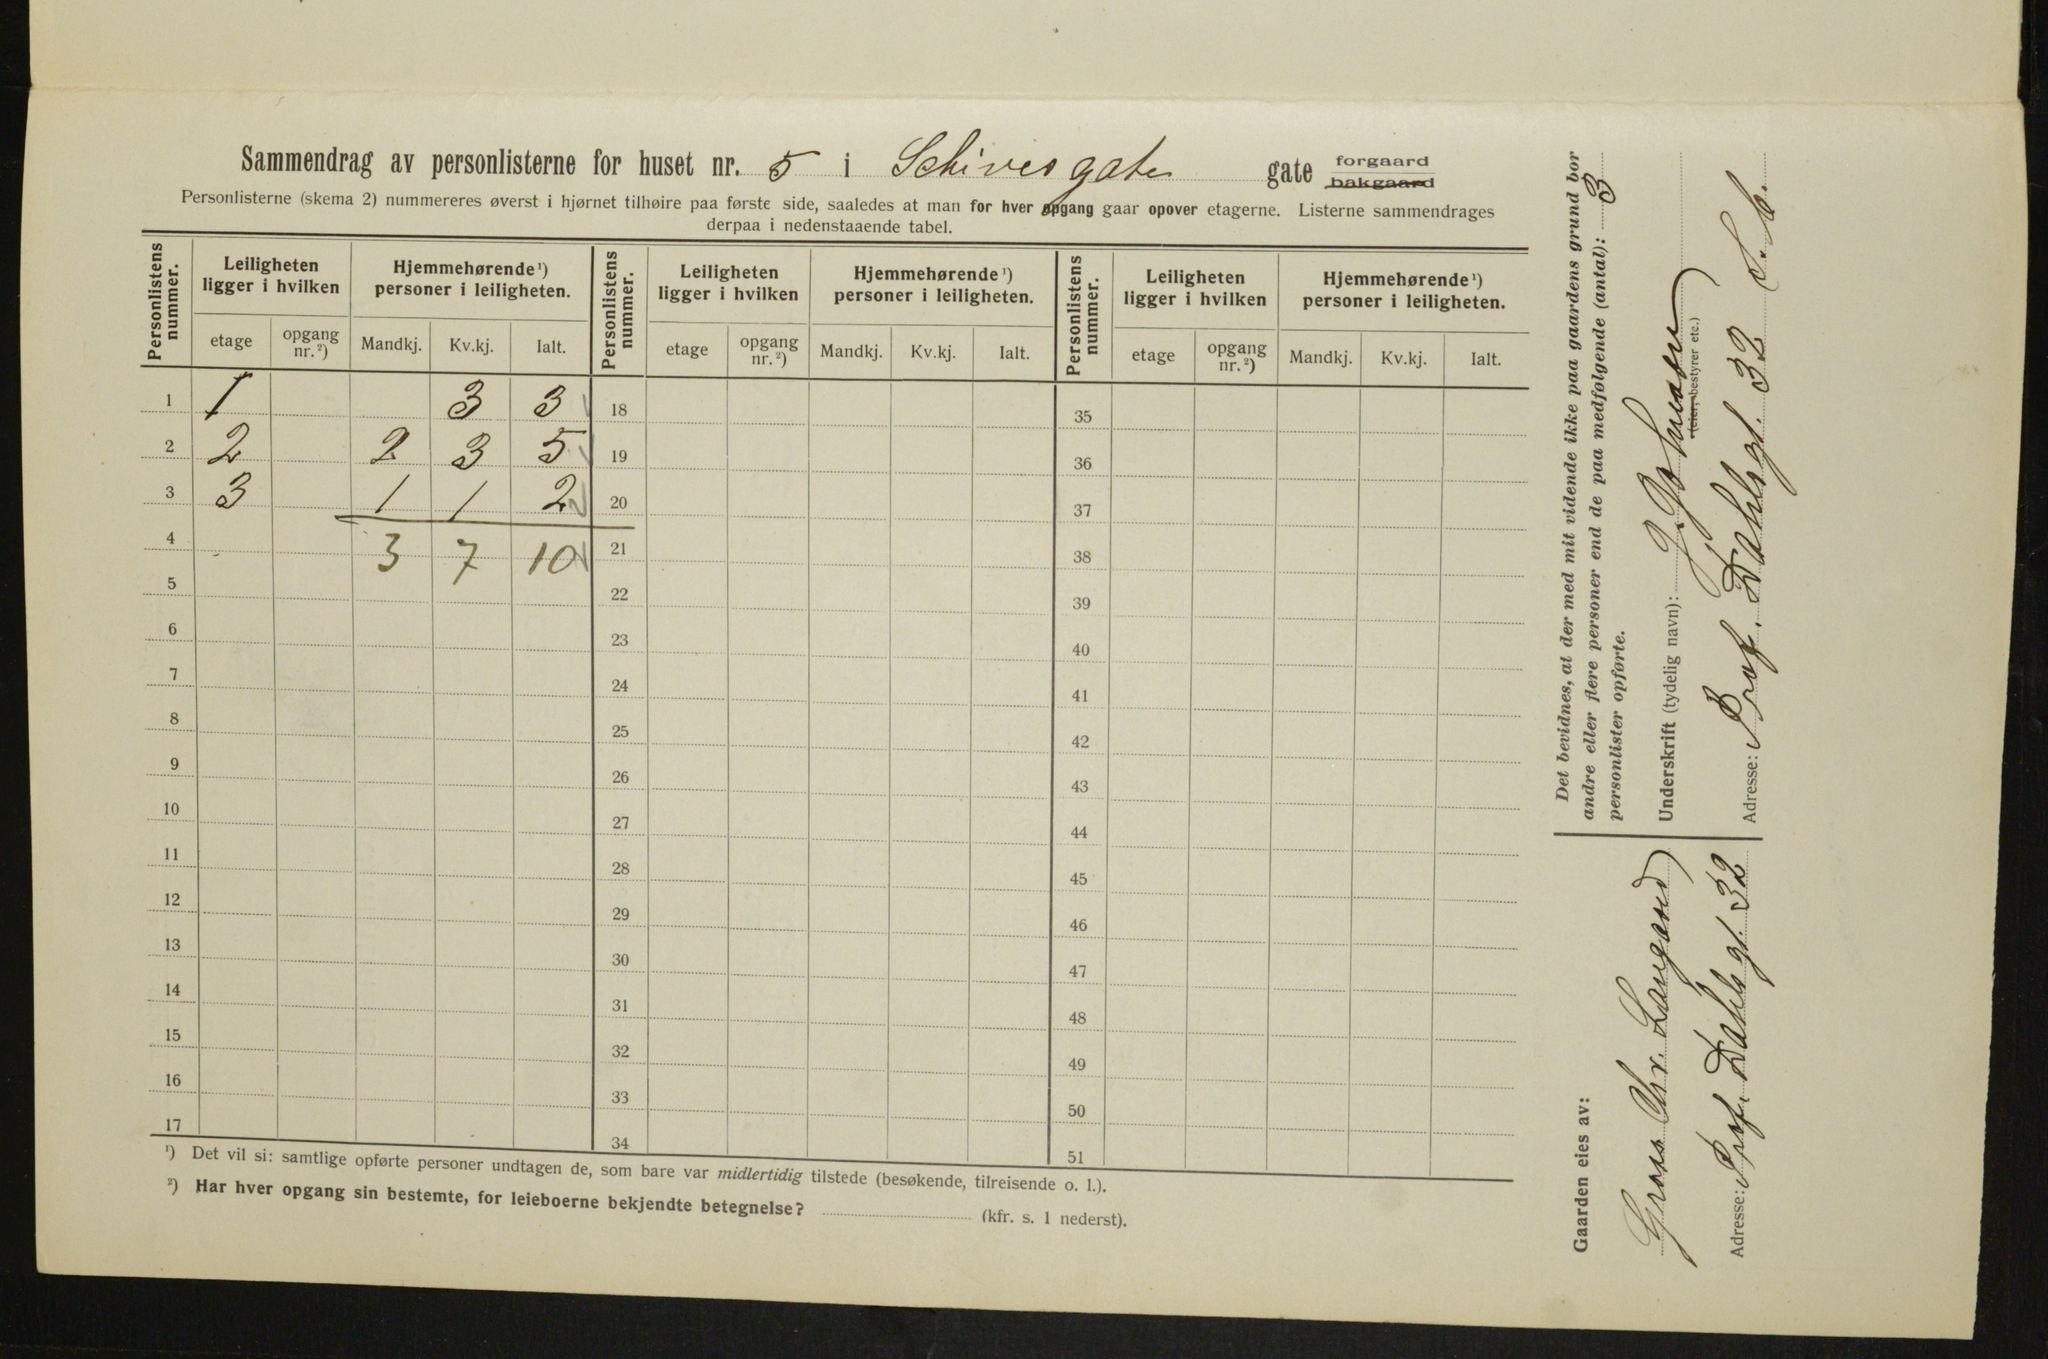 Sammendrag av personlisterne for huset nr. 5 i Schivesgate gate forgaard bakgaard
Personlisterne (skema 2) nummereres øverst i hjørnet tilhøire paa første side, saaledes at man for hver opgang gaar opover etagerne. Listerne sammendrages
derpaa i nedenstaaende tabel.
Personlistens nummer. Leiligheten ligger i hvilken Hjemmehørende ¹) personer i leiligheten. Personlistens nummer. Leiligheten ligger i hvilken Hjemmehørende ¹) personer i leiligheten. Personlistens nummer. Leiligheten ligger i hvilken Hjemmehørende ¹) personer i leiligheten.
etage opgang nr. ²) Mandkj. Kv.kj. Ialt. etage opgang nr. ²) Mandkj. Kv.kj. Ialt. etage opgang nr. ²) Mandkj. Kv.kj. Ialt.
1 1 3 3 18 35
2 2 2 3 5 19 36
3 3 1 1 2 20 37
4 3 7 10 21 38
5 22 39
6 23 40
7 24 41
8 25 42
9 26 43
10 27 44
11 28 45
12 29 46
13 30 47
14 31 48
15 32 49
16 33 50
17 34 51
¹) Det vil si: samtlige opførte personer undtagen de, som bare var midlertidig tilstede (besøkende, tilreisende o. l.).
²) Har hver opgang sin bestemte, for leieboerne bekjendte betegnelse? (kfr. s. 1 nederst).
Det bevidnes, at der med mit vidende ikke paa gaardens grund bor
andre eller flere personer end de paa medfølgende (antal): 3
personlister opførte.
Underskrift (tydelig navn):
(eier, bestyrer etc.)
Adresse: Prof. Dahlsgt. 32
Gaarden eies av:
Chr. Langaard
Adresse: Prof. Dahlsgt. 32